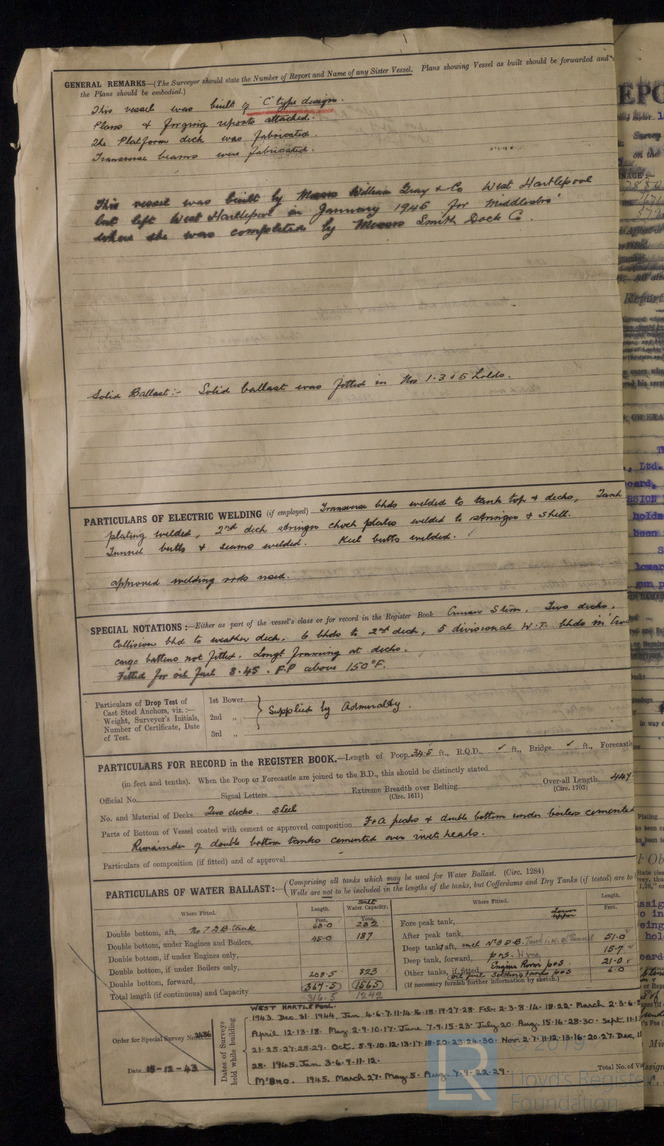 GENERAL REMARKS—(The Surveyor should state the Number of Report and Name of any Sister Vessel. Plans showing Vessel as built should be forwarded and
the Plans should be embodied.)
This vessel was built of "C" type design.
Plans & forging reports attached.
The Platform deck was fabricated.
Transverse beams were fabricated.
This vessel was built by Messrs William Gray & Co West Hartlepool
but left West Hartlepool in January 1945 for Middlesbro'
where she was completed by Messrs Smith Dock Co.
Solid Ballast:- Solid ballast was fitted in Nos 1.3 & 5 holds.
PARTICULARS OF ELECTRIC WELDING (if employed) Transverse bhds welded to tank top & decks, Tank
plating welded, 2nd deck stringer chock plates welded to stringer & shell.
Tunnel butts & seams welded. Keel butts welded.
approved welding rods used.
SPECIAL NOTATIONS:—Either as part of the vessel's class or for record in the Register Book Cruiser Stern. Two decks.
Collision bhd to weather deck. 6 bhds to 2nd deck, 5 divisional W.T. bhds in
cargo battens not fitted. Longl framing at decks.
Fitted for oil fuel 8.45. F.P above 150°F.
Particulars of Drop Test of
Cast Steel Anchors, viz.:—
Weight, Surveyor's Initials,
Number of Certificate, Date
of Test.
1st Bower
2nd "
3rd "
Supplied by Admiralty.
PARTICULARS FOR RECORD in the REGISTER BOOK.—Length of Poop 34.5 ft., R.Q.D. ✓ ft., Bridge ✓ ft., Forecastle
(in feet and tenths). When the Poop or Forecastle are joined to the B.D., this should be distinctly stated
Official No. Signal Letters Extreme Breadth over Belting Over-all Length,
(Circ. 1611) (Circ. 1703)
No. and Material of Decks Two decks. Steel
Parts of Bottom of Vessel coated with cement or approved composition F & A peaks & double bottom under boilers cemented
Remainder of double bottom tanks cemented over rivet heads.
Particulars of composition (if fitted) and of approval
PARTICULARS OF WATER BALLAST:— (Comprising all tanks which may be used for Water Ballast. (Circ. 1284)
Wells are not to be included in the lengths of the tanks, but Cofferdams and Dry Tanks (if tested) are to
Where Fitted. Length. Salt Water Capacity. Where Fitted. Length.
Feet. Tons. Feet.
Double bottom, aft, No 7 D.B tank
Double bottom, under Engines and Boilers, 45.0 187
Double bottom, if under Engines only,
Double bottom, if under Boilers only,
Double bottom, forward, 208.5 823
Total length (if continuous) and Capacity 367.5 1565
316.5
Fore peak tank,
After peak tank,
Deep tank, aft, 51.0
Deep tank, forward, 15.7
Other tanks, if fitted, Engine Room P&S 21.0
oil fuel Settling tanks P&S 6.0
(If necessary furnish further information by sketch.)
Order for Special Survey No.
Date 15-12-43
Dates of Surveys
held while building
WEST HARTLEPOOL.
1943. Dec 31. 1944. Jan 4.6.7.11.14.16.18.19.27.28 Feb 2.3.8.14.18.22. March 2.3.6.
April 12.13.18. May 2.9.10.17. June 7.9.15.23. July 20. Aug. 15.16.28.30. Sept. 11.
21.25.27.28.29. Oct. 5.9.10.12.13.17.18.20.23.24.30. Nov. 2.7.11.12.13.16.20.27. Dec.
28. 1945. Jan. 3.6.9.11.12.
M'Bro. 1945. March 27. May 5. Aug. 7.9.22.29.
Total No. of
LR
2019
Lloyd's Register
Foundation